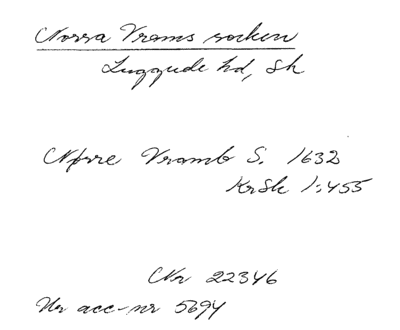 Norra Vrams socken
Luggude hd, Sk
Nörre Vramb S. 1632
KrSk 1:455
Nr 22346
Ur acc-nr 5694